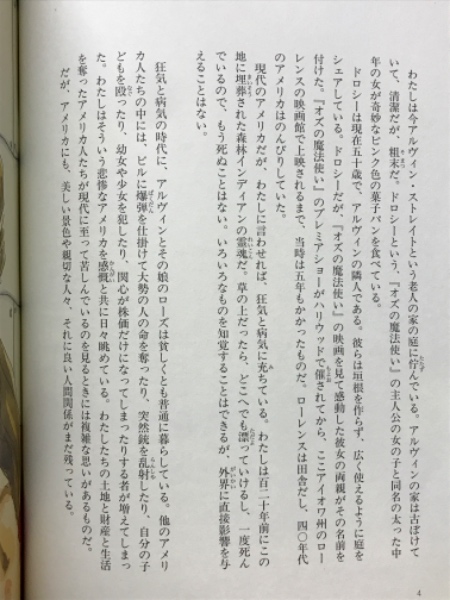 わたしは今アルヴィン・ストレイトという老人の家の庭に佇んでいる。アルヴィンの家は古ぼけて
いて、清潔だが、粗末だ。ドロシーという、『オズの魔法使い』の主人公の女の子と同名の太った中
年の女が奇妙なピンク色の菓子パンを食べている。
ドロシーは現在五十代で、アルヴィンの隣人である。彼らは垣根を作らず、広く使えるように庭を
シェアしている。ドロシーだが、『オズの魔法使い』の映画を見て感動した彼女の両親がその名前を
付けた。『オズの魔法使い』のプレミアショーがハリウッドで催されてから、ここアイオワ州のロー
レンスの映画館で上映されるまで、当時は五年もかかったものだ。ローレンスは田舎だし、四〇年代
のアメリカはのんびりしていた。
現代のアメリカだが、わたしに言わせれば、狂気と病気に充ちている。わたしは百二十年前にこの
地に埋葬された森林インディアンの霊魂だ。草の上だったら、どこへでも漂っていけるし、一度死ん
でいるので、もう死ぬことはない。いろいろなものを知覚することはできるが、外界に直接影響を与
えることはない。
狂気と病気の時代に、アルヴィンとその娘のローズは貧しくとも普通に暮らしている。他のアメリ
カ人たちの中には、ビルに爆弾を仕掛けて大勢の人の命を奪ったり、突然銃を乱射したり、自分の子
どもを殴ったり、幼女や少女を犯したり、関心が株価だけになってしまったりする者が増えてしまっ
た。わたしはそういう悲惨なアメリカを感慨と共に日々眺めている。わたしたちの土地と財産と生活
を奪ったアメリカ人たちが現代に至って苦しんでいるのを見るときには複雑な思いがあるものだ。
だが、アメリカにも、美しい景色や親切な人々、それに良い人間関係がまだ残っている。
4